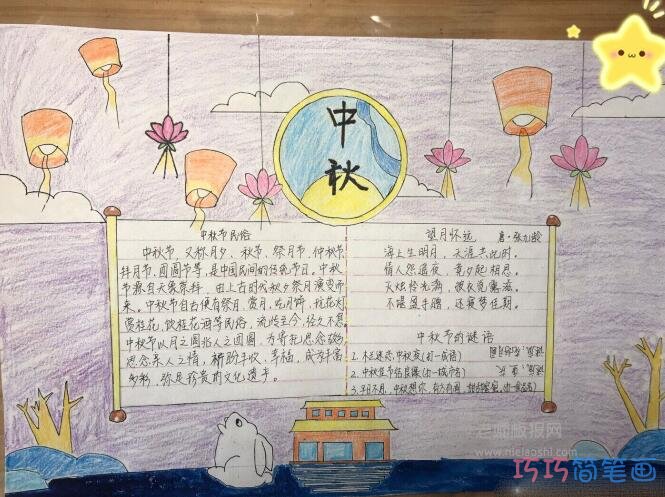 中秋
中秋节民俗
中秋节,又称月夕、秋节、祭月节、仲秋节
拜月节、团圆节等,是中国民间的传统节日。中秋
节源自天象崇拜,由上古时代秋夕祭月演变而
来。中秋节自古便有祭月、赏月、吃月饼、玩花灯
赏桂花、饮桂花酒等民俗,流传至今,经久不息
中秋节以月之圆兆人之团圆,为寄托思念故乡
思念亲人之情,祈盼丰收、幸福,成为丰富
多彩,弥足珍贵的文化遗产。
望月怀远
唐·张九龄
海上生明月,天涯共此时。
情人怨遥夜,竟夕起相思。
灭烛怜光满,披衣觉露滋。
不堪盈手赠,还寝梦佳期。
中秋节的谜语
2.中秋佳节结良缘(打一城市名)
老师板报网
www.nielaoshi.com
巧巧简笔画